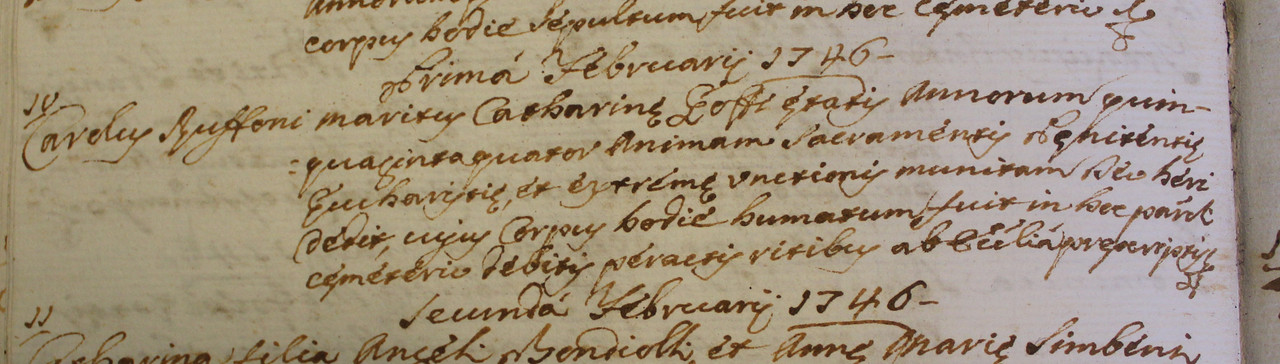 Annorum
corpus hodie sepultum fuit in hoc cęmeterio
Primá Februarij 1746-
10
Carolus Ruffoni maritus Catharinę Goffi ętatis Annorum quin-
quaginta quator Animam Sacramentis Pęnitentię
Eucharistię, et extremę unctionis munitam Deo heri
dedit, cujus Corpus hodie humatum fuit in hoc paroli
cęmeterio debitis peractis ritibus ab Ecclíá prescriptis
secundá Februarij 1746-
11
Catharina filia Angeli Bondiolli et Annę Marię Simbeni